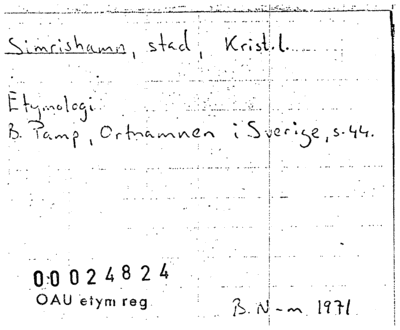 Simrishamn, stad, Krist.l.
Etymologi
B. Pamp, Ortnamnen i Sverige, s. 44.
00024824
OAU etym reg
B. N-m 1971